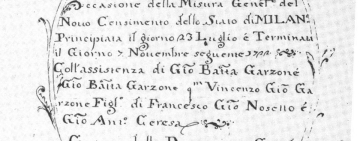 Occasione della Misura Gener͂. del
Novo Censimento dello Stato di MILAN°.
Principiata il giorno 23 Luglio è Terminata
il Giorno 7 Novembre seguente 1722
Coll'assistenza di Gio͂ Batt͂a Garzone
Gio͂ Batt͂a Garzone qm̃ Vincenzo Gio͂ Ga
rzone Figl°. di Francesco Gio͂ Nosello è
Gio͂ Ant°. Ceresa